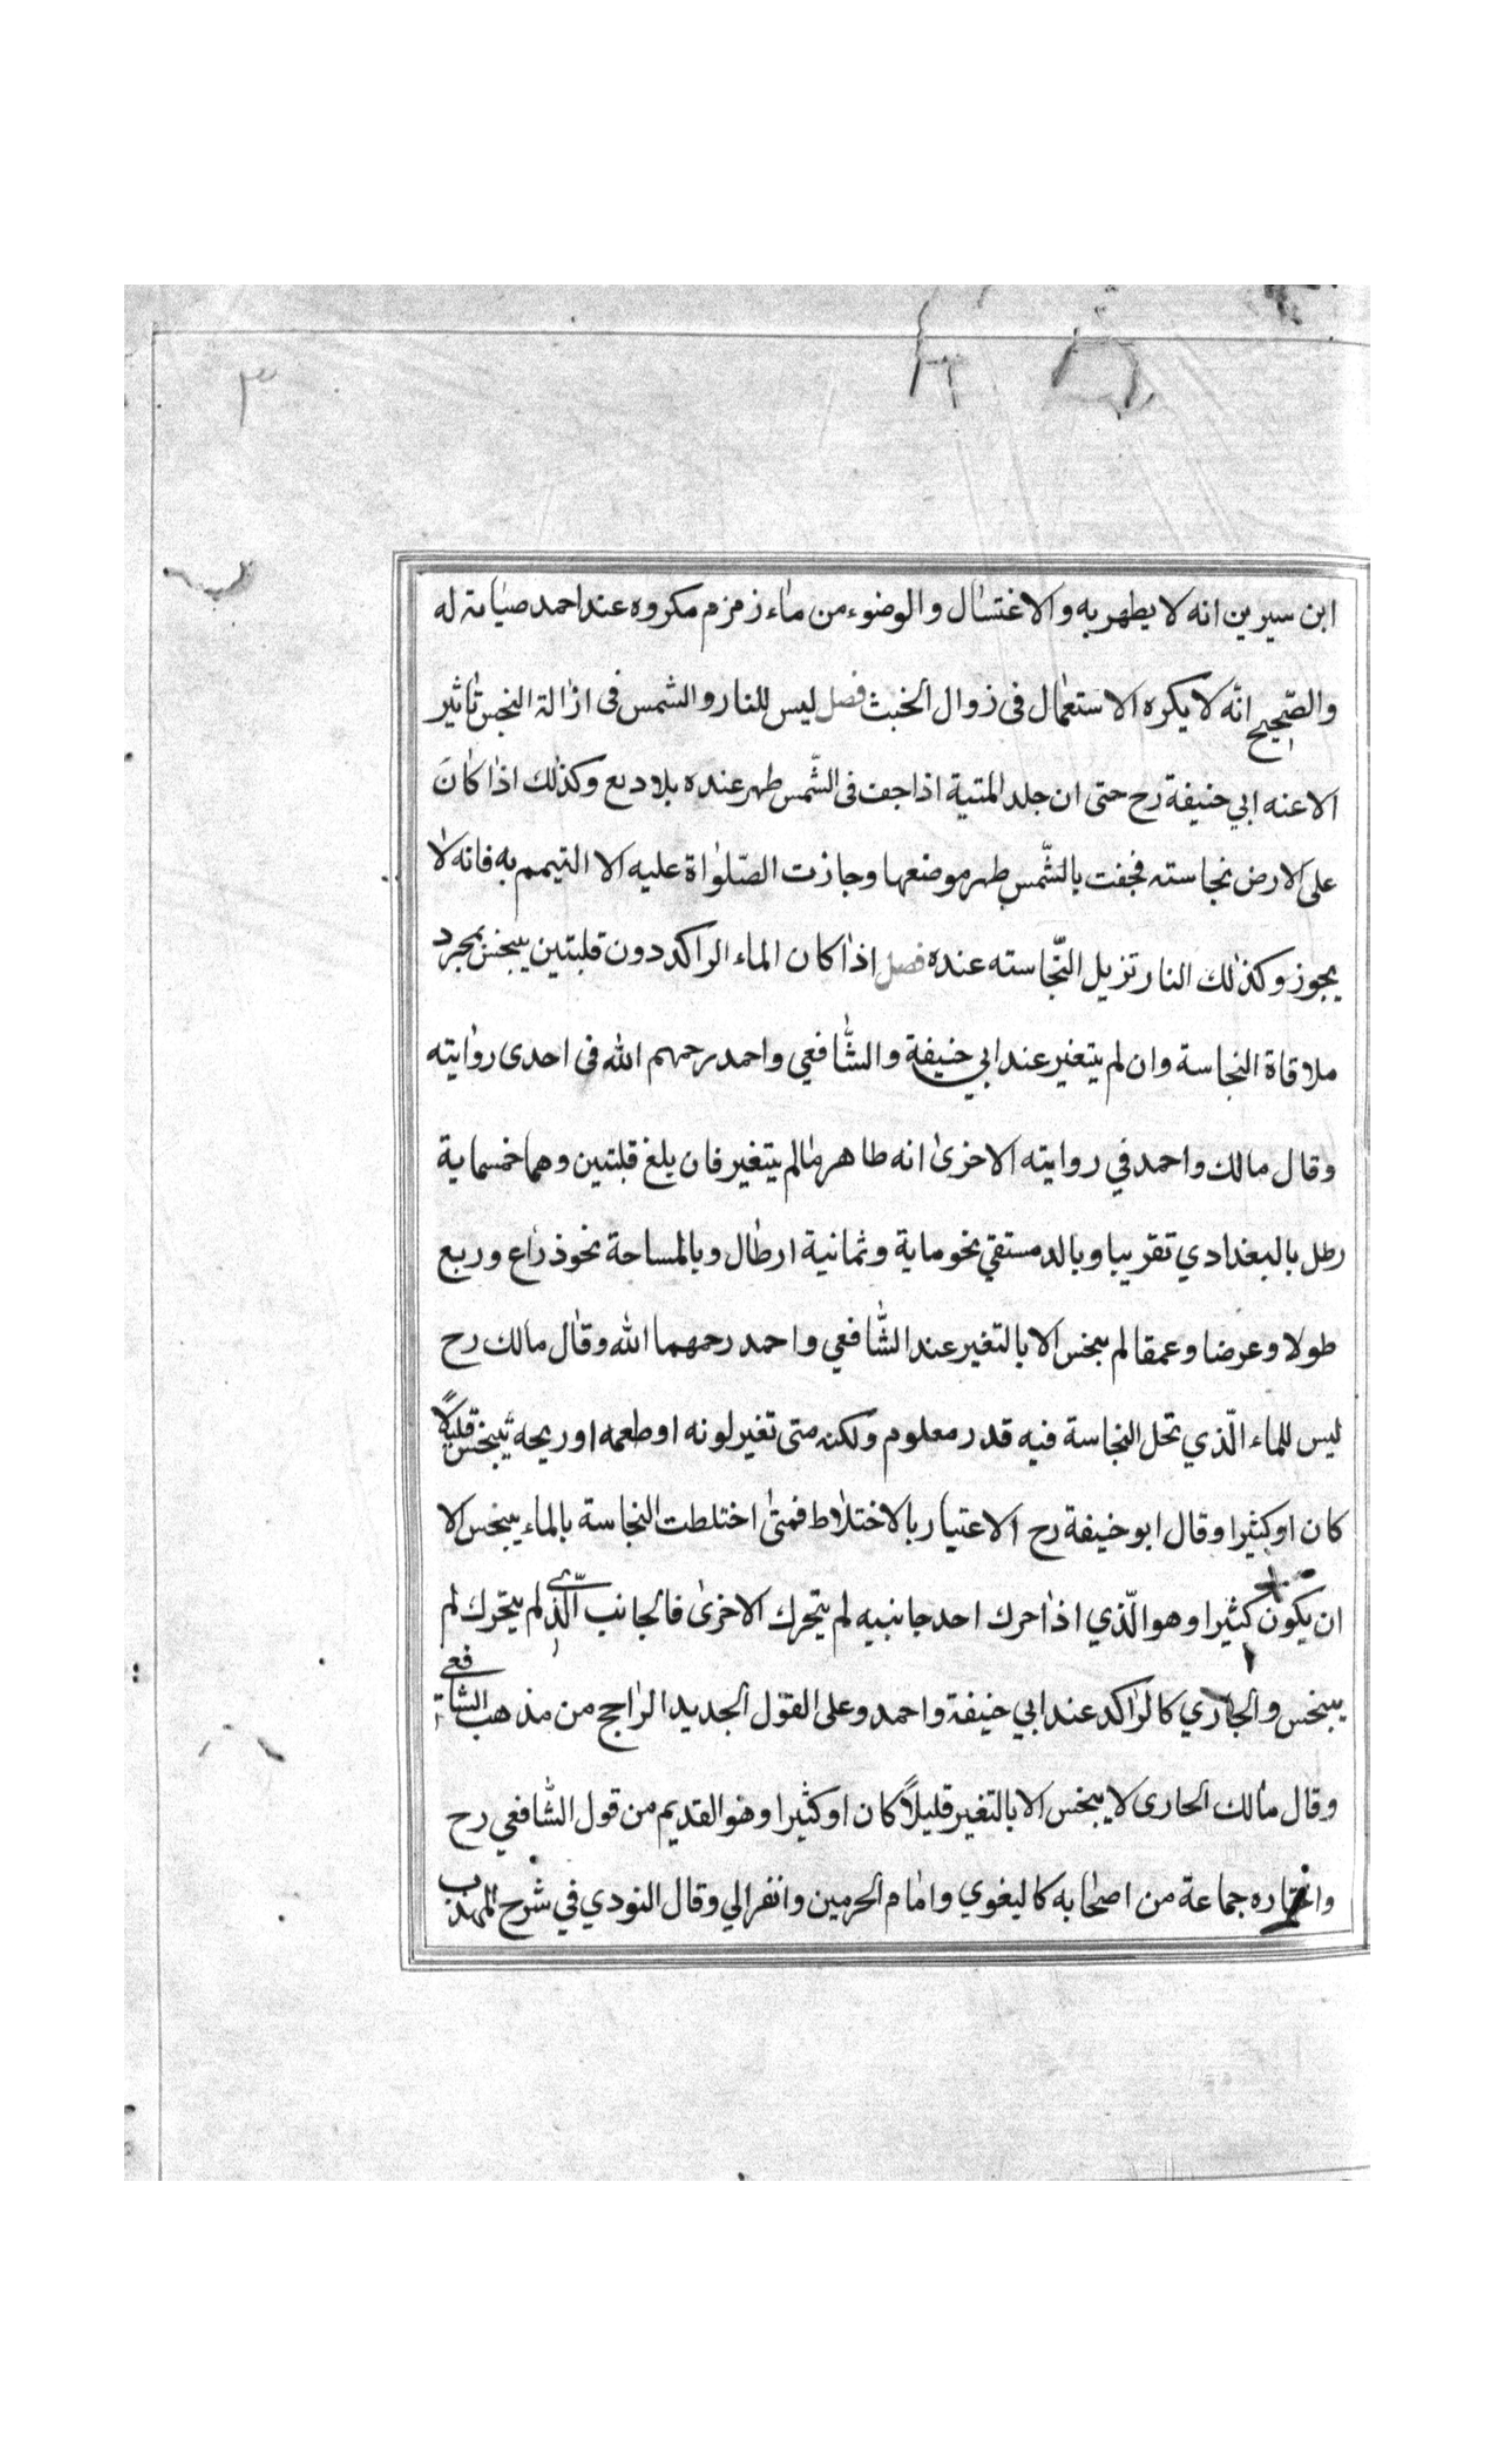 ٣
ابن سيرين انه لا يطهر به والاغتسال والوضوء من ماء زمزم مكروه عند احمد صيانة له
والصّحيح انّه لا يكره الاستعمال فى زوال الخبث فصل ليس للنار والشمس فى ازالة النجس تاثير
الا عنه ابي حنيفة رح حتى ان جلد المتية اذا جف فى الشّمس طهر عنده بلا دبع وكذلك اذا كان
على الارض نجاسته فجفت بالشّمس طهر موضعها وجازت الصّلواة عليه الا التيمم به فانه لا
يجوز وكذلك النار تزيل النّجاسته عنده فصل اذا كان الماء الراكد دون قلبتين ينجس بمجرد
ملاقاة النجاسة وان لم يتغير عند ابي حنيفة والشّافعي واحمد رحمهم الله فى احدى روايته
وقال مالك واحمد في روايته الاخرى انه طاهر مالم يتغير فان بلغ قلبتين وهما خمسماية
رطل بالبغدادي تقريبا وبالدمستقي نحو ماية وثمانية ارطال وبالمساحة نحو ذراع وربع
طولا وعرضا وعمقا لم ينجس الا بالتغير عند الشّافعي واحمد رحمهما الله وقال مالك رح
ليس للماء الّذي تحل النجاسة فيه قدر معلوم ولكنه متى تغير لونه او طعمه او ريحه ينجس قليلاً
كان او كثيرا وقال ابو حنيفة رح الاعتبار بالاختلاط فمتى اختلطت النجاسة بالماء ينجس الا
ان يكون كثيرا وهو الّذي اذا حرك احد جانبيه لم يتحرك الاخرى فالجانب الّذى لم يتحرك لم
ينجس والجاري كالراكد عند ابي حنيفة واحمد وعلى القول الجديد الراجح من مذهب الشافعى
وقال مالك الجارى لا ينجس الا بالتغير قليلاً كان او كثيرا وهو القديم من قول الشّافعي رح
واختاره جماعة من اصحابه كالبغوي وامام الحرمين وانفرالي وقال النودي في شرح المهذب